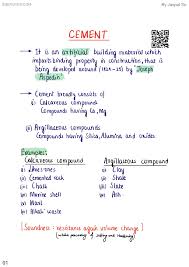 CEMENT
→ It is an artificial building material which
imparts binding property in construction, that is
being developed around (1824-25) by "Joseph
Aspedin"
→ Cement broadly consists of
(i) Calcareous compounds
Compounds having Ca, Mg
(ii) Argillaceous compounds
Compounds having Silica, Alumina and oxides.
Examples:
Calcareous compound Argillaceous compound
(i) Limestones (i) Clay
(ii) Cemented rock (ii) Shale
(iii) Chalk (iii) Slate
(iv) Marine shell (iv) Ash
(v) Marl
(vi) Alkali waste
[Soundness : resistance again volume change]
01